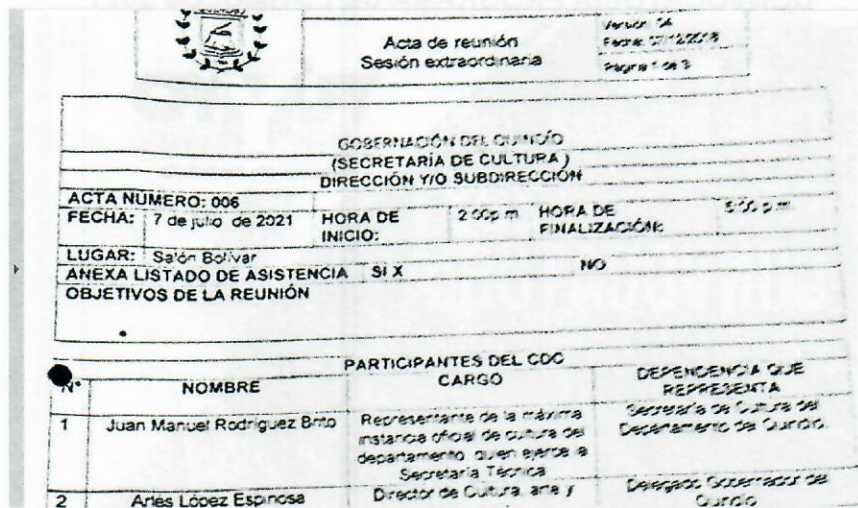 QUINDÍO
Acta de reunión
Sesión extraordinaria
Versión: 04
Fecha: 07/12/2018
Página 1 de 3
GOBERNACIÓN DEL QUINDÍO
(SECRETARÍA DE CULTURA )
DIRECCIÓN Y/O SUBDIRECCIÓN
ACTA NÚMERO: 006
FECHA: 7 de julio de 2021 HORA DE INICIO: 2:00p.m HORA DE FINALIZACIÓN: 5:00 p.m.
LUGAR: Salón Bolívar
ANEXA LISTADO DE ASISTENCIA SI X NO
OBJETIVOS DE LA REUNIÓN
PARTICIPANTES DEL CDC
N° NOMBRE CARGO DEPENDENCIA QUE REPRESENTA
1 Juan Manuel Rodríguez Brito Representante de la máxima instancia oficial de cultura del departamento, quien ejerce la Secretaría Técnica Secretaría de Cultura del Departamento del Quindío.
2 Arles López Espinosa Director de Cultura, arte y Delegado Gobernador del Quindío